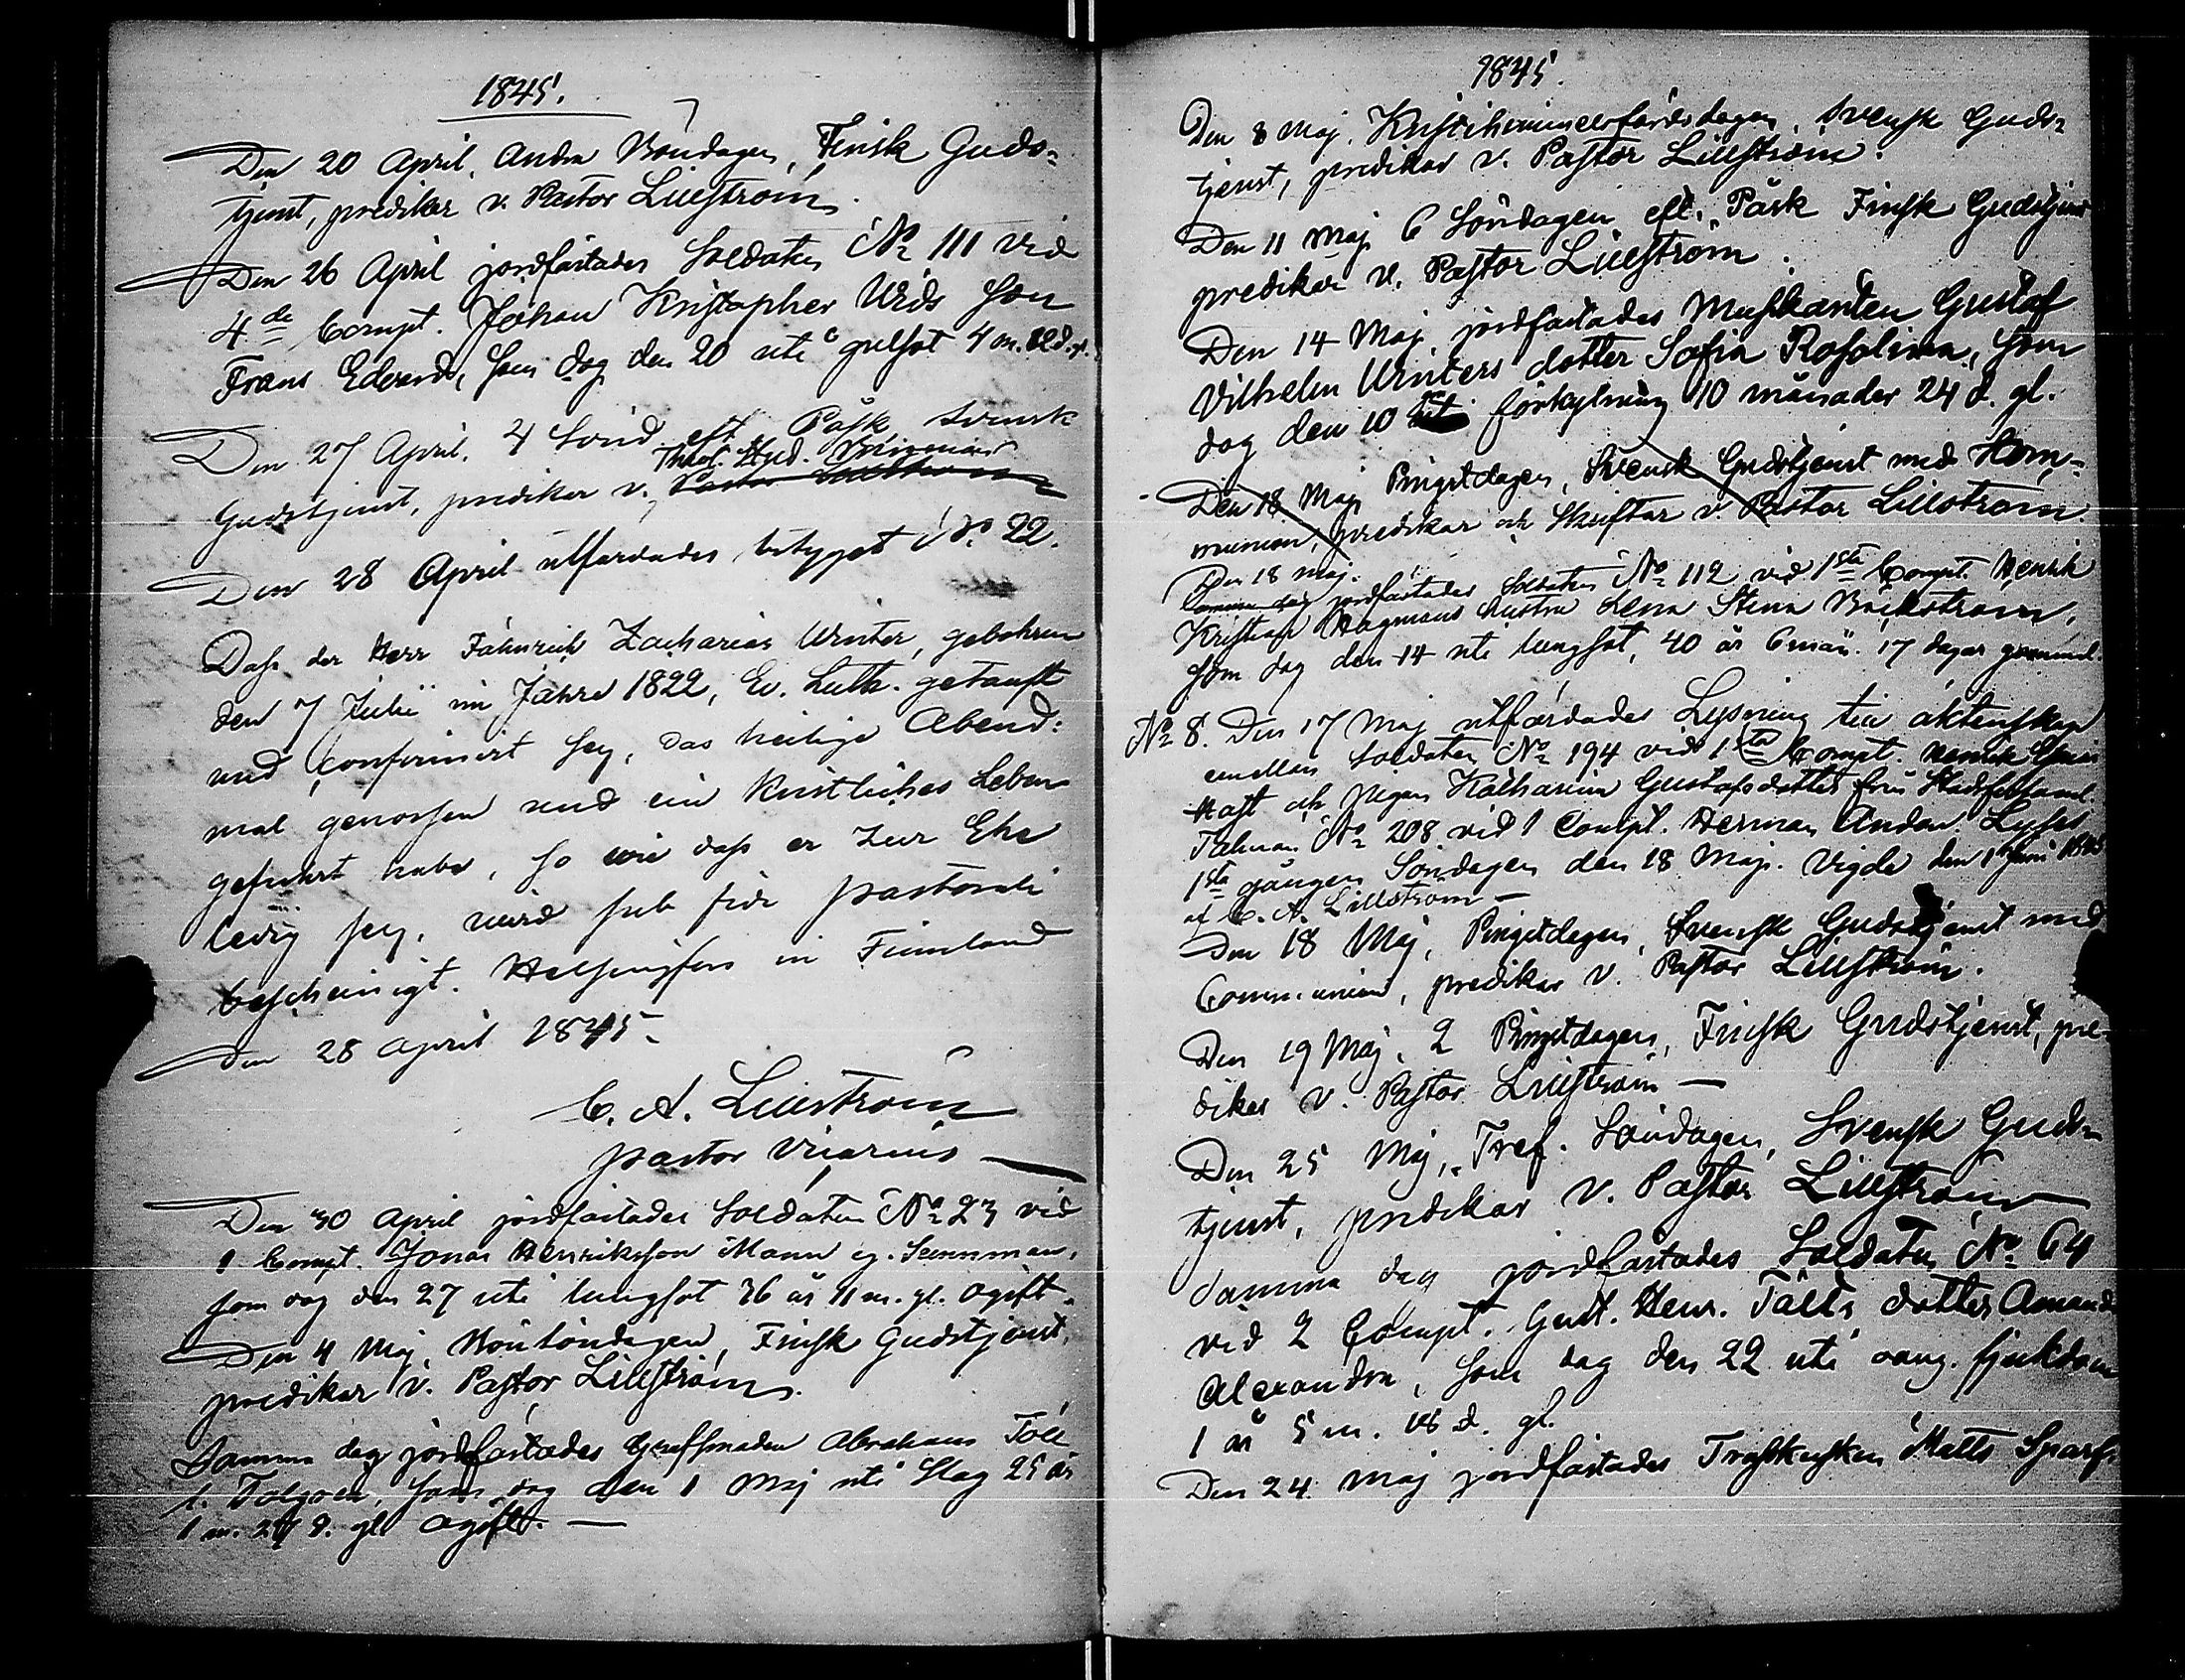 1845.
Den 20 April, Andra Böndagen, Finsk Guds-
tjenst, predikar v. Pastor Lillström.
Den 26 April jordfästades Soldaten No 111 vid
4de Compt. Johan Kristopher Wids son
Frans Edvard, som dog den 20 uti gulsot 4 m.
Den 27 April, 4 Sönd. eft. Påsk, Svensk
Theol. Stud.
Gudstjenst, predikar v. Pastor Lillström
Den 28 April utfärdades betyget No. 22.
Dass der Herr Fähnrich Zacharias Winter, gebohren
den 7 Julii im Jahre 1822, Ev. Luth. getauft
und confirmirt sey, das heilige Abend-
mal genossen und ein kristliches Leben
geführt habe, so wie dass er zur Ehe
ledig sey, wird sub fide pastorali
bescheinigt. Helsingfors in Finnland
den 28 April 1845.
C. A. Lillström
pastor vicarius
Den 30 April jordfästades Soldaten No 23 vid
1 Compt. Jonas Henriksson Mann eg. Sunnman,
som dog den 27 uti lungsot 36 år 11 m. gl. ogift.
Den 4 Maj, Bönsöndagen, Finsk Gudstjenst,
predikar v. Pastor Lillström.
Samma dag jordfästades Abraham
som dog den 1 Maj uti Slag 25 år
1 m. 27 d. gl. ogift.
1845.
Den 8 Maj, Kristihimmelsfärdsdagen, Svensk Guds-
tjenst, predikar v. Pastor Lillström.
Den 11 Maj 6 Söndagen eft. Påsk Finsk Gudstjenst
predikar v. Pastor Lillström.
Den 14 Maj jordfästades Musikanten Gustaf
Vilhelm Winters dotter Sofia Rosalina, som
dog den 10 förkylning 10 månader 24 d. gl.
Den 18 Maj Pingstdagen, Svensk Gudstjenst med Kom-
munion, predikar och Skriftar v. Pastor Lillström.
Den 18 maj.
Samma dag jordfästades Soldaten No 112 vid 1sta Compt. Henrik
Kristian Hagmans hustru Lena Stina Bäckström,
som dog den 14 uti lungsot, 40 år 6 mån. 17 dagar gammal.
No 8. Den 17 Maj utfärdades Lysning till äktenskap
emellan Soldaten No 194 vid 1sta Kompt. Henrik
Hast och pigan Katharina Gustafsdotter från
No 208 vid 1 Compt. Herman Lyses
1sta gången Söndagen den 18 Maj. Vigde den 1 Juni 1845
af C. A. Lillström
Den 18 Maj, Pingstdagen, Svensk Gudstjenst med
Communion, predikar v. Pastor Lillström.
Den 19 Maj, 2 Pingstdagen, Finsk Gudstjenst, pre-
dikar v. Pastor Lillström
Den 25 Maj, Tref. Söndagen, Svensk Guds-
tjenst, predikar v. Pastor Lillström
Samma dag jordfästades Soldaten No 64
vid 2 Compt. Gust. Henr. Fälts dotter Amanda
Alexandra, som dog den 22 uti oang. sjukdom
1 år 5 m. 18 d. gl.
Den 24 Maj jordfästades Matts